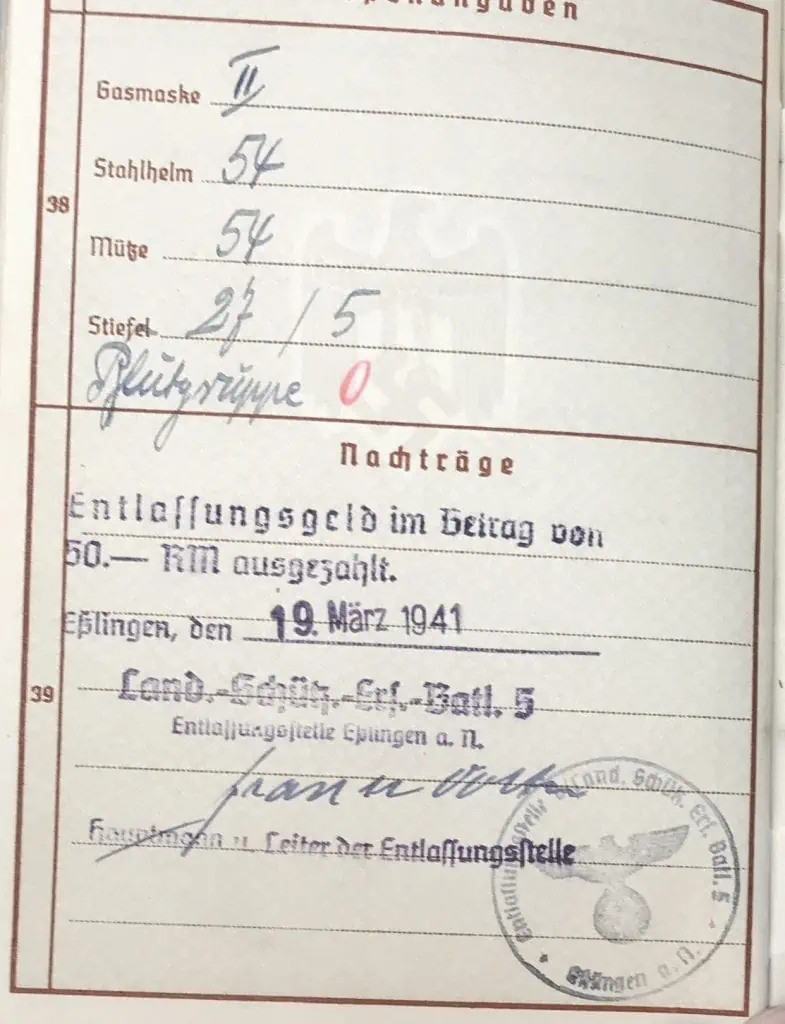 38
Gasmaske II
Stahlhelm 54
Mütze 54
Stiefel 27 / 5
Blutgruppe 0
Nachträge
39
Entlassungsgeld im Betrag von
50.— RM ausgezahlt.
Eßlingen, den 19. März 1941
Land.-Schütz.-Ers.-Batl. 5
Entlassungsstelle Eßlingen a. N.
Hauptmann u. Leiter der Entlassungsstelle
Entlassungsstelle Land. Schütz. Ers. Batl. 5
Eßlingen a. N.